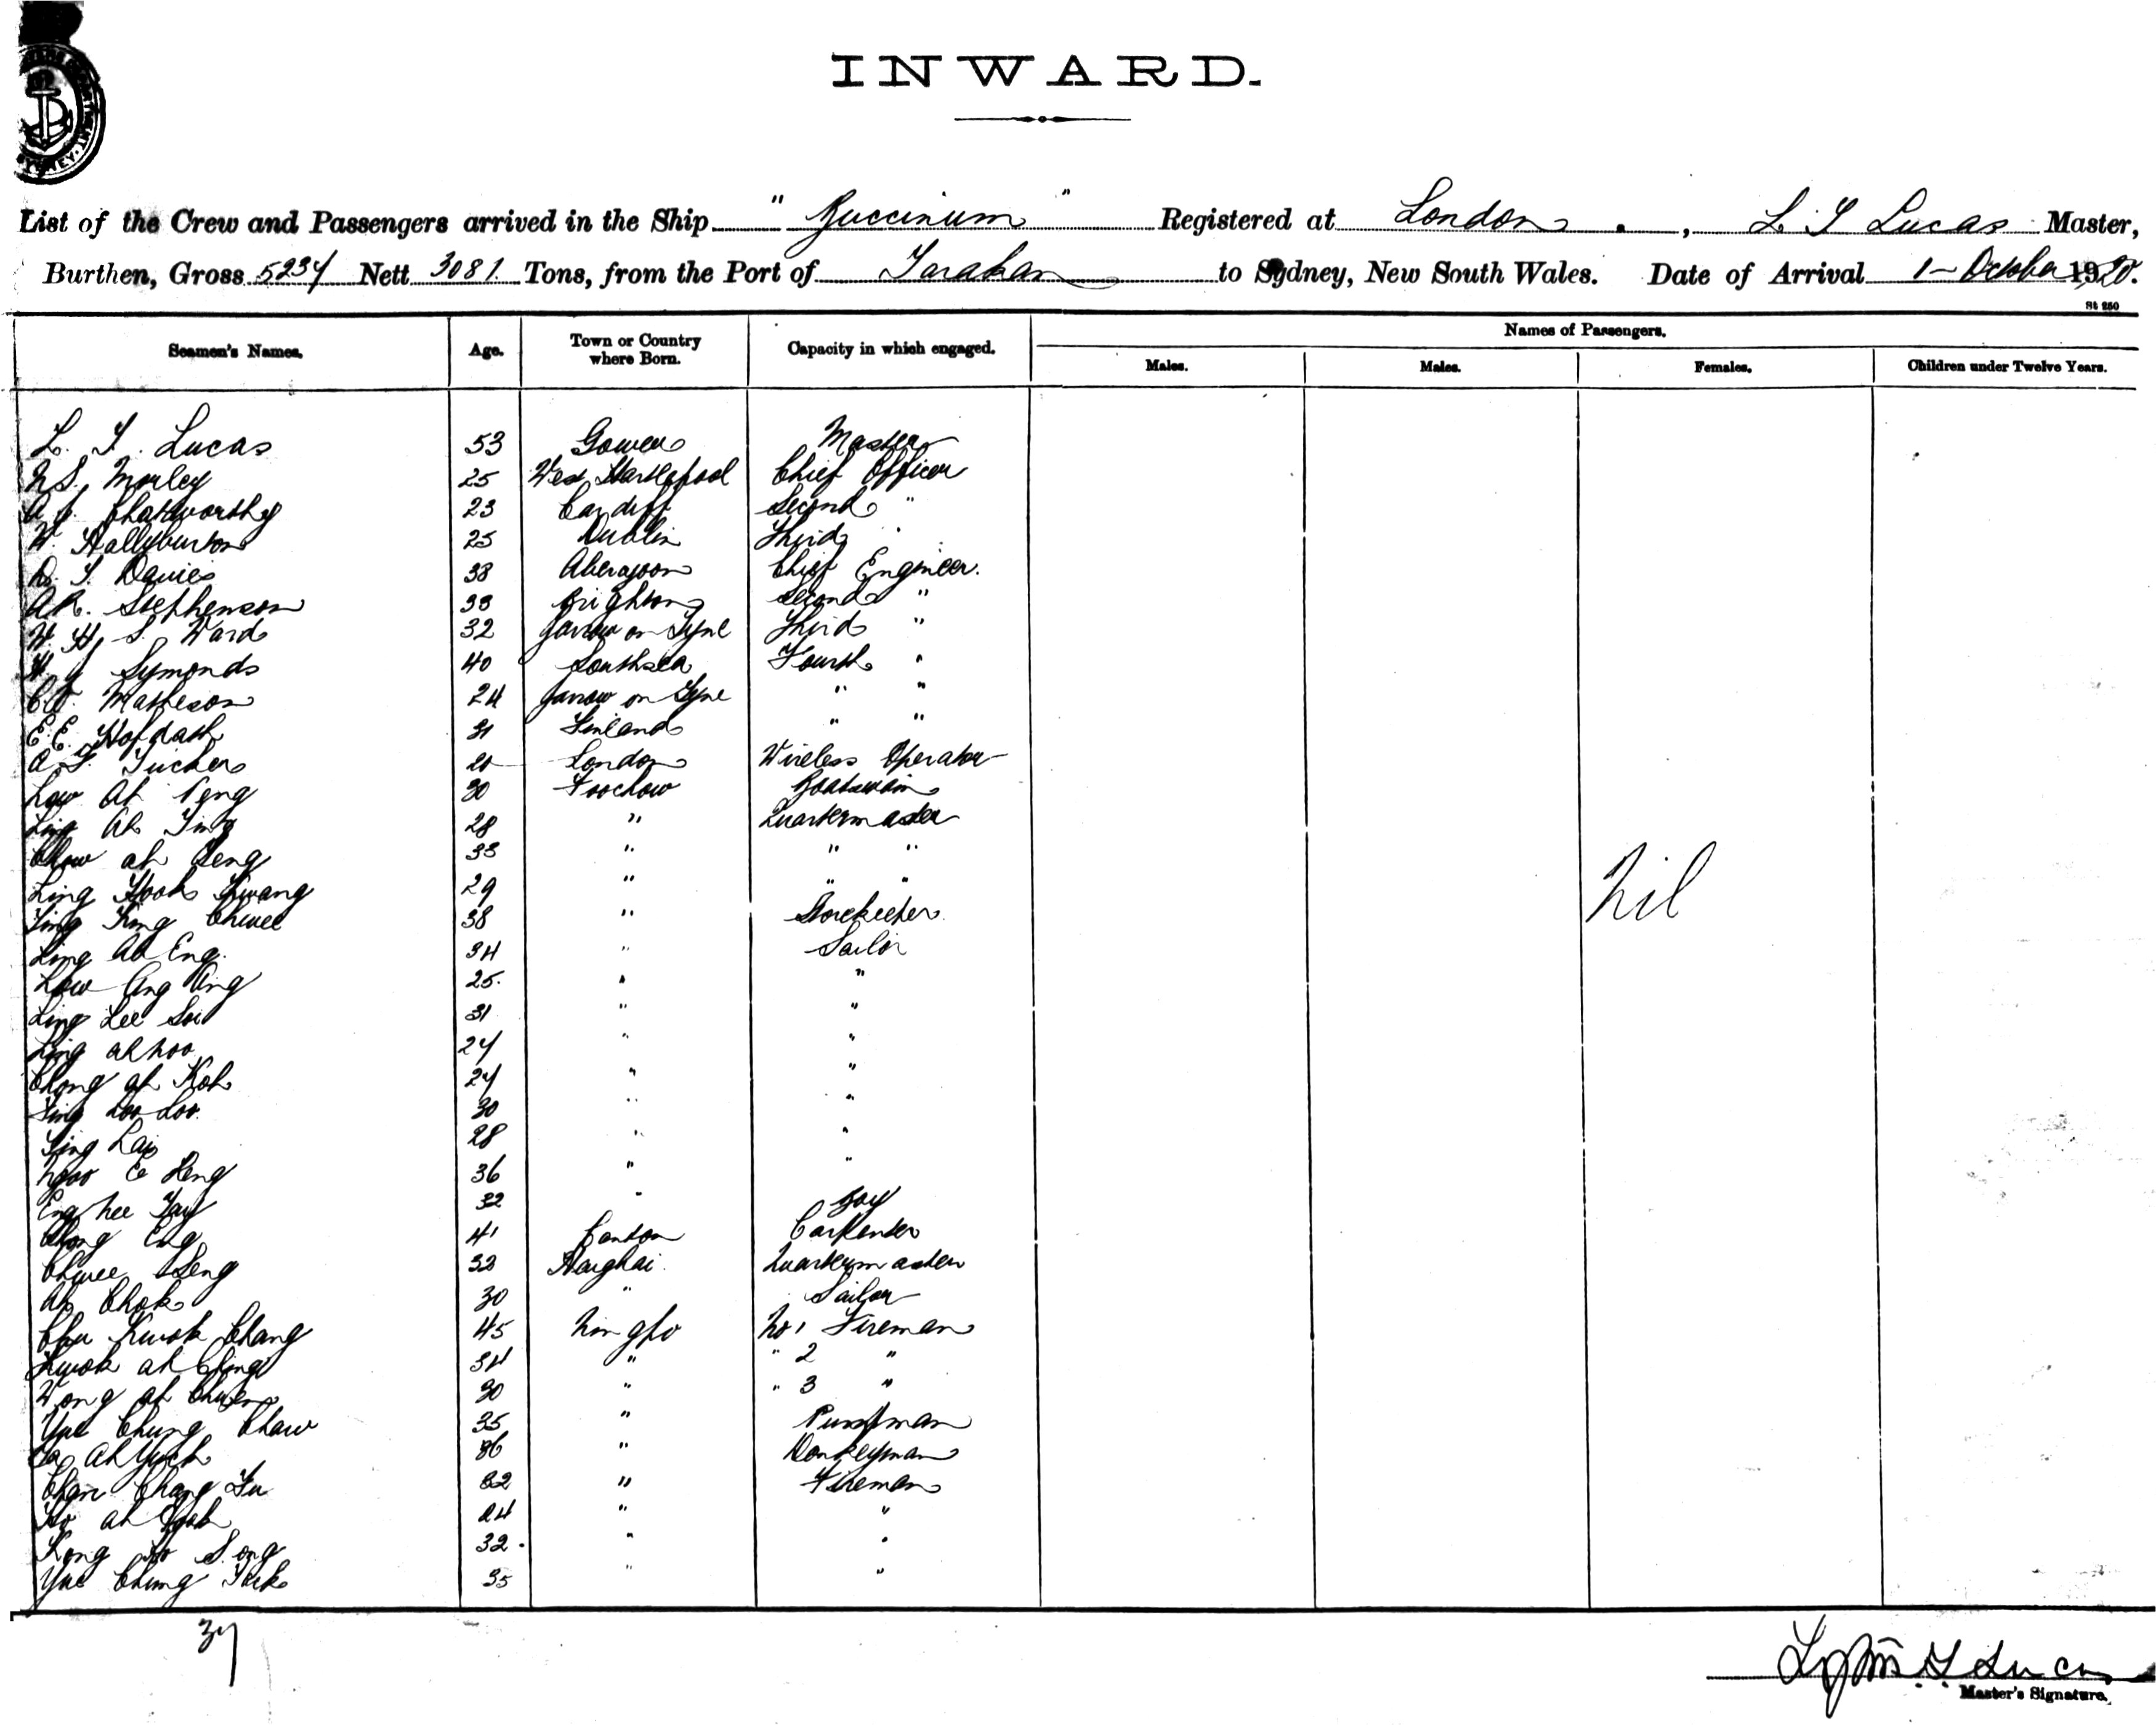 INWARD.
List of the Crew and Passengers arrived in the Ship " Buccinum " Registered at London , L. T Lucas Master,
Burthen, Gross 5237 Nett 3081 Tons, from the Port of Tarakan to Sydney, New South Wales. Date of Arrival 1 - October 1920.
St 250
Seamen's Names. Age. Town or Country where Born. Capacity in which engaged. Names of Passengers.
Males. Males. Females. Children under Twelve Years.
L. T. Lucas 53 Gower Master
Morley 25 West Hartlepool Chief Officer
Chatworthy 23 Cardiff Second "
W. Hallyburton 25 Dublin Third "
D. T. Davies 38 Aberavon Chief Engineer.
A R. Stephenson 33 Brighton Second "
W. H. S. Ward 32 Jarrow on Tyne Third "
Symonds 40 Southsea Fourth "
Matheson 24 Jarrow on Tyne " "
E E. Hofdath 31 Finland " "
A. T. Tucker London Wireless Operator
Low Ah Peng 30 Foochow Boatswain
Ling Ah Ting 28 " Quartermaster
Chow ah Seng 33 " " "
Ling Hook Kwang 29 " " "
Ting King Chwee 38 " Storekeeper
Ling Ah Eng. 34 " Sailor
Low Ang Ong 25. " "
Ling Lee Soi 31 " "
Ling ah hoo 27 " "
Chong ah Koh 27 " "
Ting Loo Loo. 30 " "
Ting Lai 28 " "
Ngoo E Leng 36 " "
Eng hee Tay 32 " Boy
Chong Eng 41 Canton Carpenter
Chwee Seng 33 Shanghai. Quartermaster
Ah Chok 30 " Sailor
Chu Kwok Chang 45 Ningpo No 1 Fireman
Kwok ah Ching 34 " " 2 "
Wong ah Chuen 30 " " 3 "
Yue Chung Chaw 35 " Pumpman
Ah Yuck 36 " Donkeyman
Chan Chang Fu 32 " Fireman
Ho ah 24 " "
Kong Ho Song 32. " "
Yue Chung Tack 35 " "
Nil
37
L. T Lucas
Master's Signature.